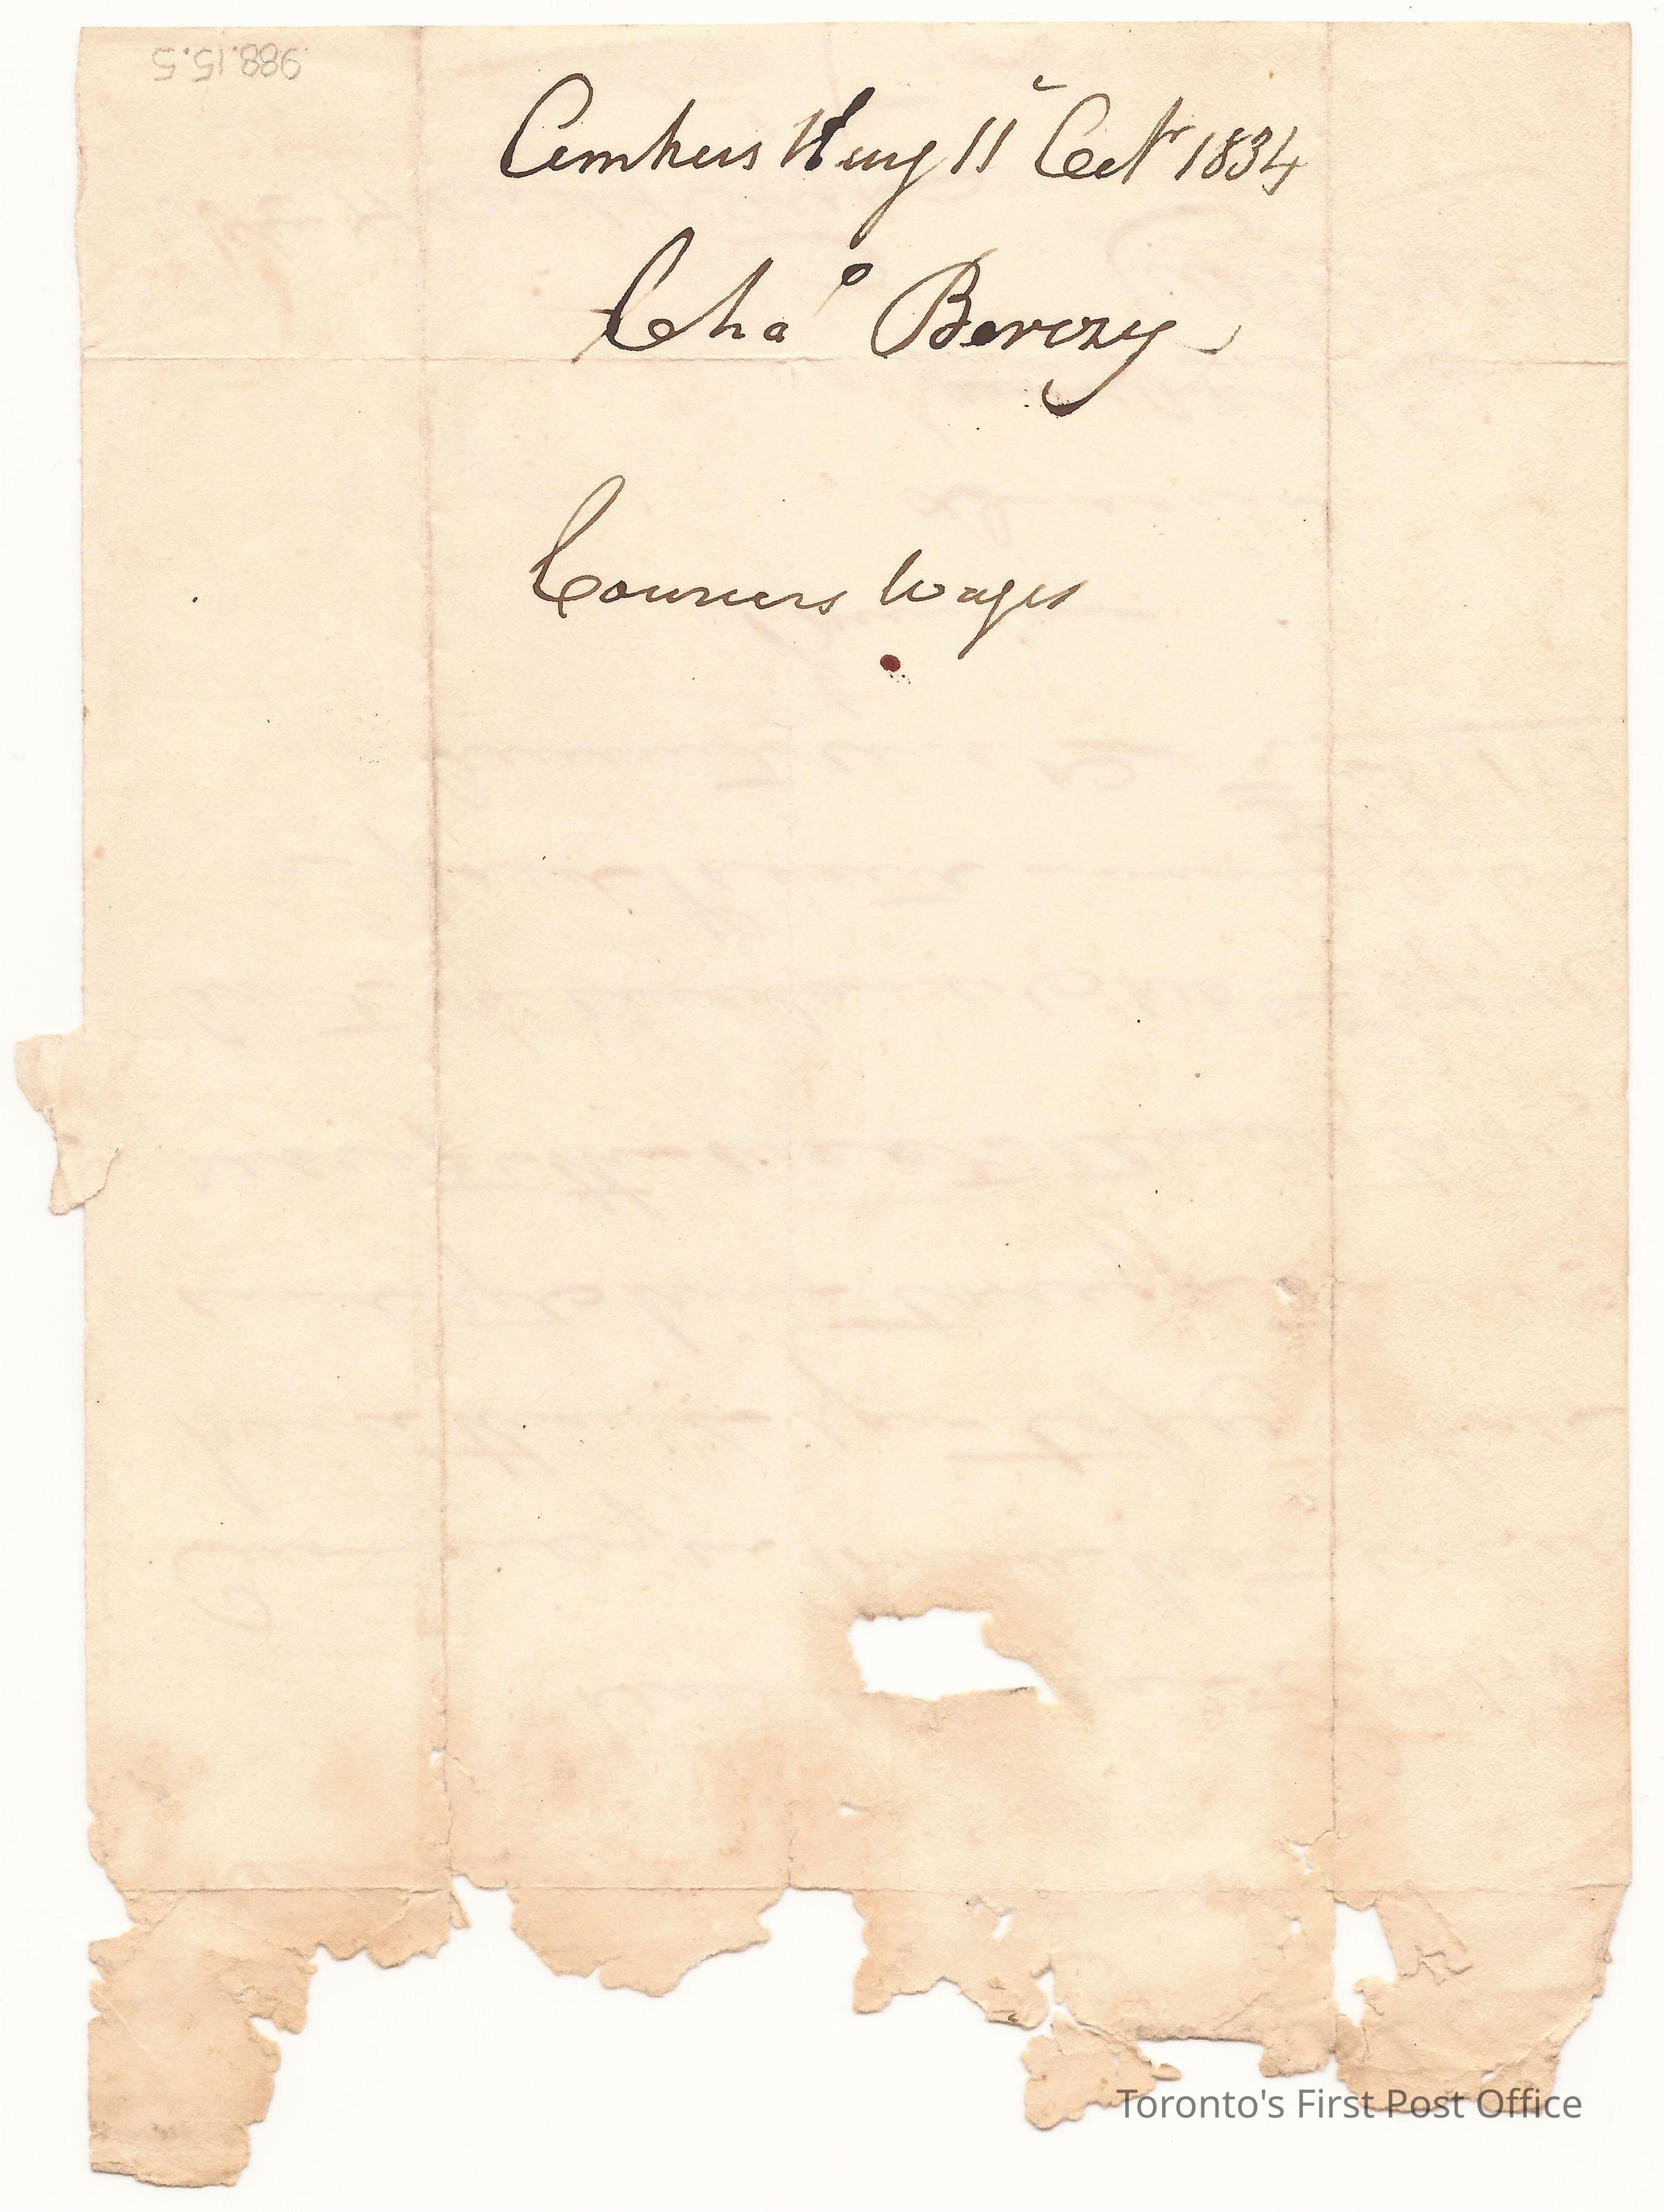 988.15.5
Amherstburg 11 Octr 1834
Chas Berczy
Couriers Wages
Toronto's First Post Office